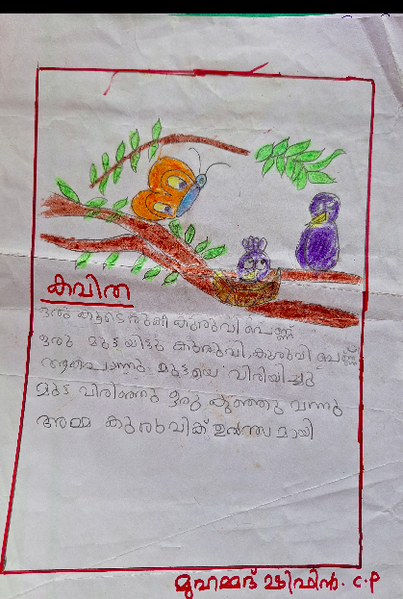 കവിത
ഒരു കൂടൊരുക്കി കുരുവി പെണ്ണ്
ഒരു മുട്ടയിട്ടു കുരുവി, കുരുവി പെണ്ണ്
മുട്ടയെ വിരിയിച്ചു
മുട്ട വിരിഞ്ഞു ഒരു കുഞ്ഞു വന്നു
അമ്മ കുരുവിക് ഉത്സമായി
മുഹമ്മദ് ഷിഫിൻ. C.P